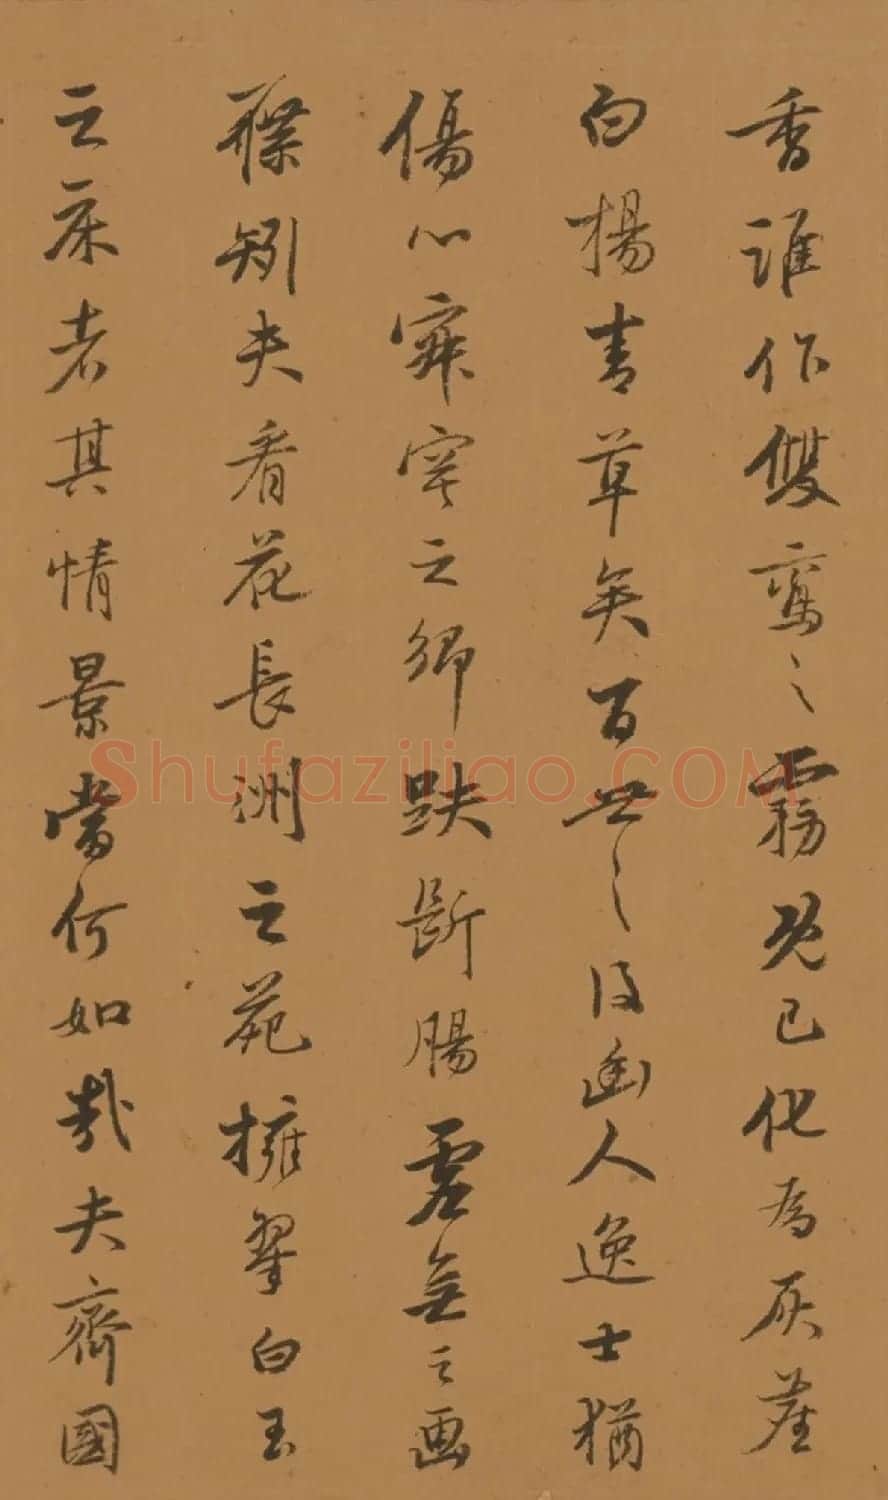 香誰作雙鸞之霧既已化為灰塵
白楊青草矣百世之後幽人逸士猶
傷心寂寞之鄉趺斷腸虛無之画
矧夫看花長洲之苑擁翠白玉
之床者其情景當何如哉夫齊國
Shufaziliao.COM